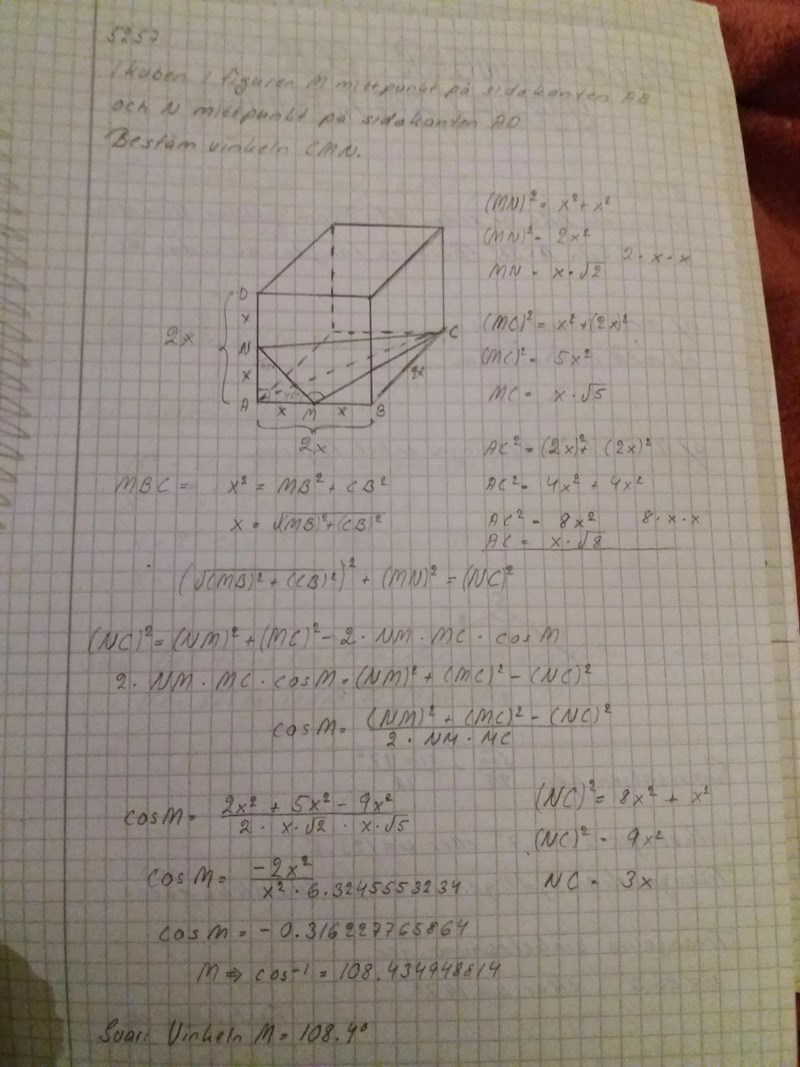 5257
I kuben i figuren M mittpunkt på sidokanten AB
och N mittpunkt på sidokanten AD
Bestäm vinkeln CMN.
(MN)² = x² + x²
(MN)² = 2x²
MN = x·√2   2·x·x
(MC)² = x² + (2x)²
(MC)² = 5x²
MC = x·√5
AC² = (2x)² + (2x)²
AC² = 4x² + 4x²
AC² = 8x²   8·x·x
AC = x·√8
D
x
2x
N
C
x
2x
A x M x B
2x
MBC = x² = MB² + CB²
x = √(MB)² + (CB)²
(√(MB)² + (CB)²)² + (MN)² = (NC)²
(NC)² = (NM)² + (MC)² - 2 · NM · MC · cosM
2 · NM · MC · cosM = (NM)² + (MC)² - (NC)²
cosM = (NM)² + (MC)² - (NC)² / 2 · NM · MC
cosM = 2x² + 5x² - 9x² / 2 · x·√2 · x·√5
(NC)² = 8x² + x²
(NC)² = 9x²
NC = 3x
cosM = -2x² / x² · 6.3245553234
cosM = -0.316227765864
M ⇒ cos⁻¹ = 108.434948814
Svar: Vinkeln M = 108.4°